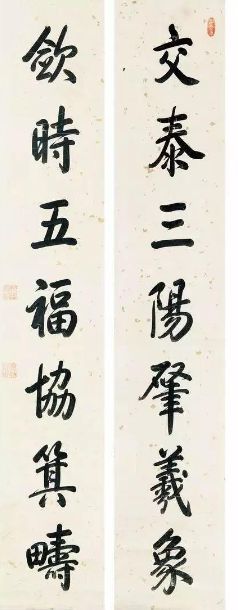 交泰三陽肇羲象
斂時五福協箕疇